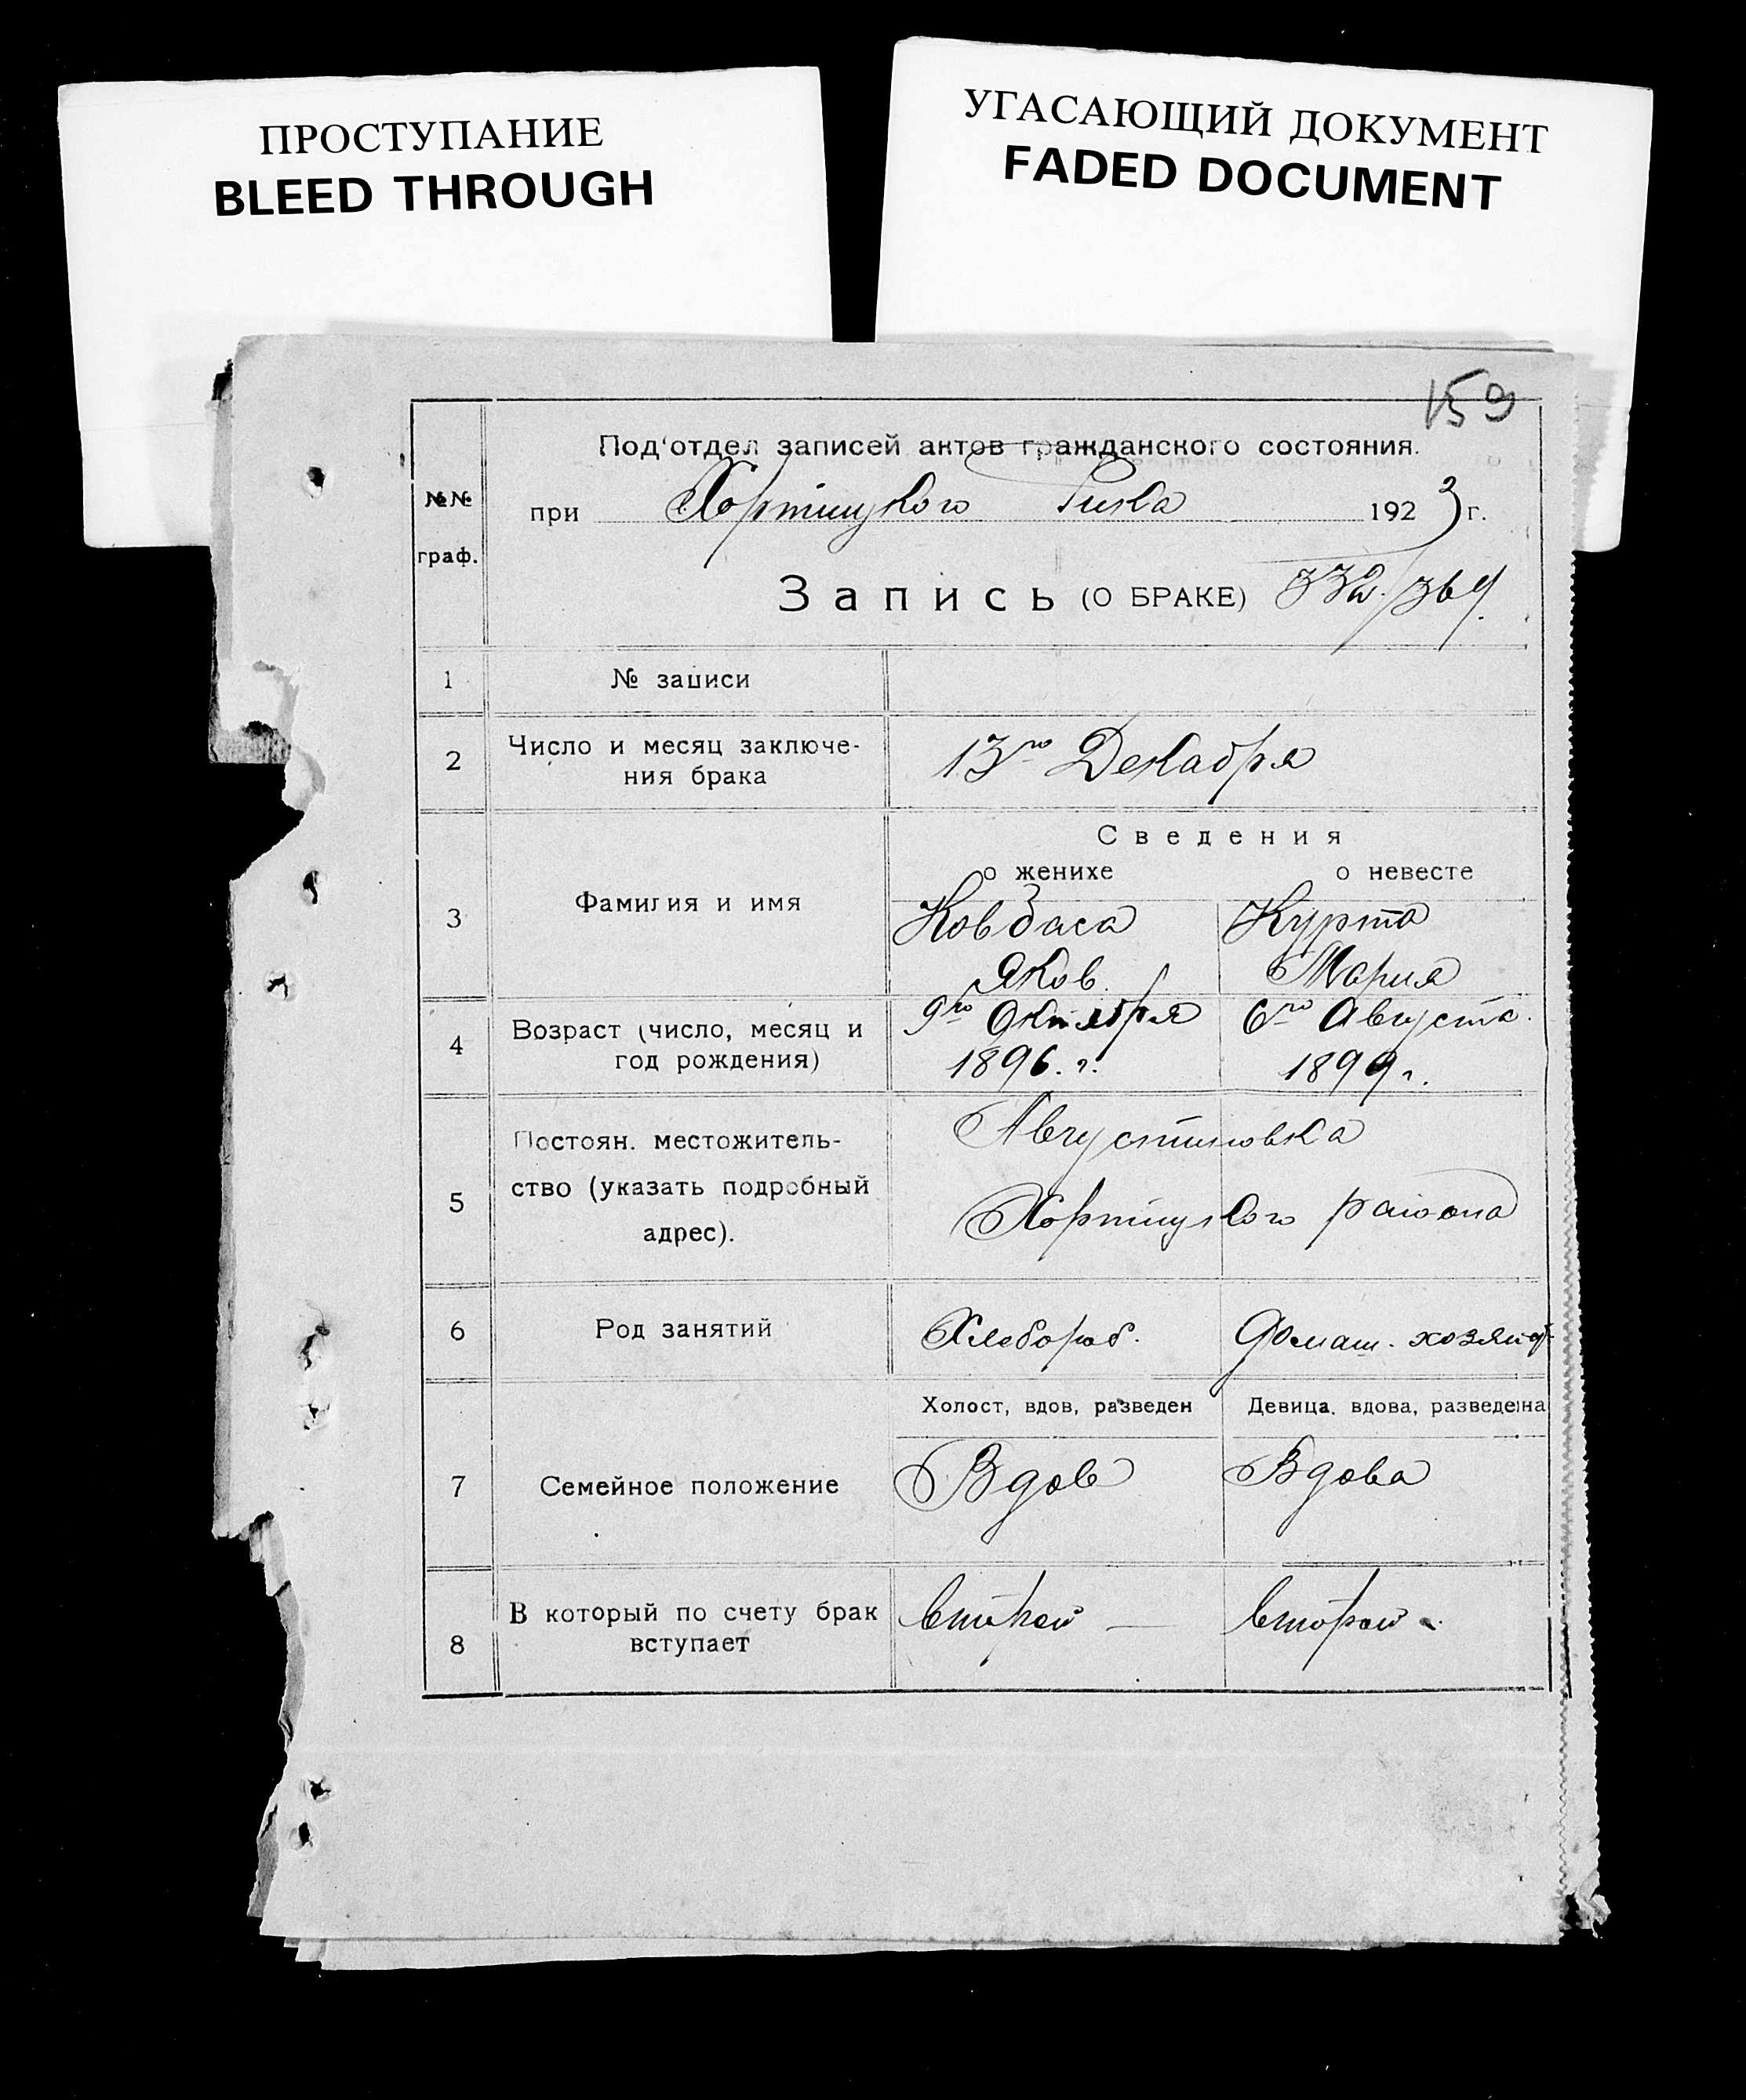 ПРОСТУПАНИЕ
BLEED THROUGH
УГАСАЮЩИЙ ДОКУМЕНТ
FADED DOCUMENT
159
Под'отдел записей актов гражданского состояния.
№№ граф.
при Хортицкого Рика 1923 г.
Запись (О БРАКЕ) 332/369.
1 № записи
2 Число и месяц заключе-
ния брака
13го Декабря
Сведения
о женихе о невесте
3 Фамилия и имя
Ковбаса Курта
Яков Мария
4 Возраст (число, месяц и
год рождения)
9го Октября 6го Августа
1896.г. 1899г.
5 Постоян. местожитель-
ство (указать подробный
адрес).
Августиновка
Хортицкого района
6 Род занятий
Хлебороб. Домаш. хозяйст
Холост, вдов, разведен Девица, вдова, разведена
7 Семейное положение
Вдов Вдова
8 В который по счету брак
вступает
второй — второй